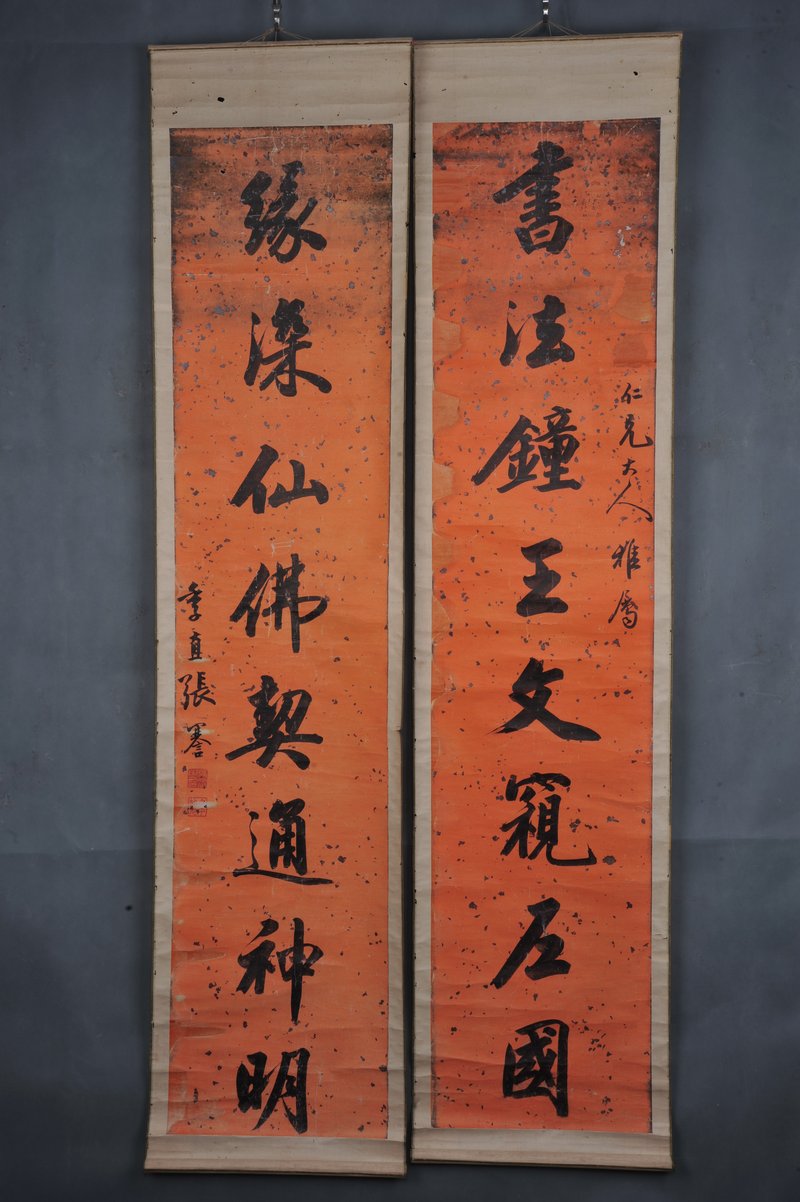 仁兄大人雅屬
書法鐘王文窺左國
緣深仙佛契通神明
季直張謇